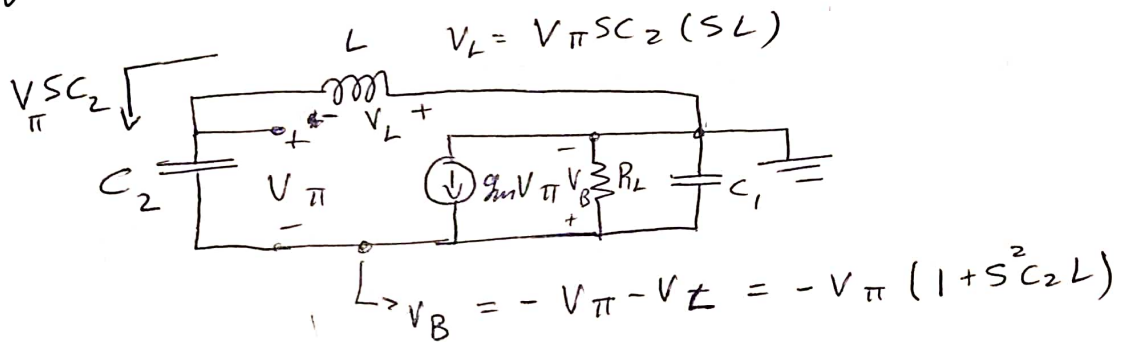 L
V_L = V_π S C_2 (S L)
V_π S C_2
- V_L +
+
C_2
V_π
-
g_m V_π
-
V_B
+
R_L
C_1
V_B = - V_π - V_L = - V_π (1 + S^2 C_2 L)